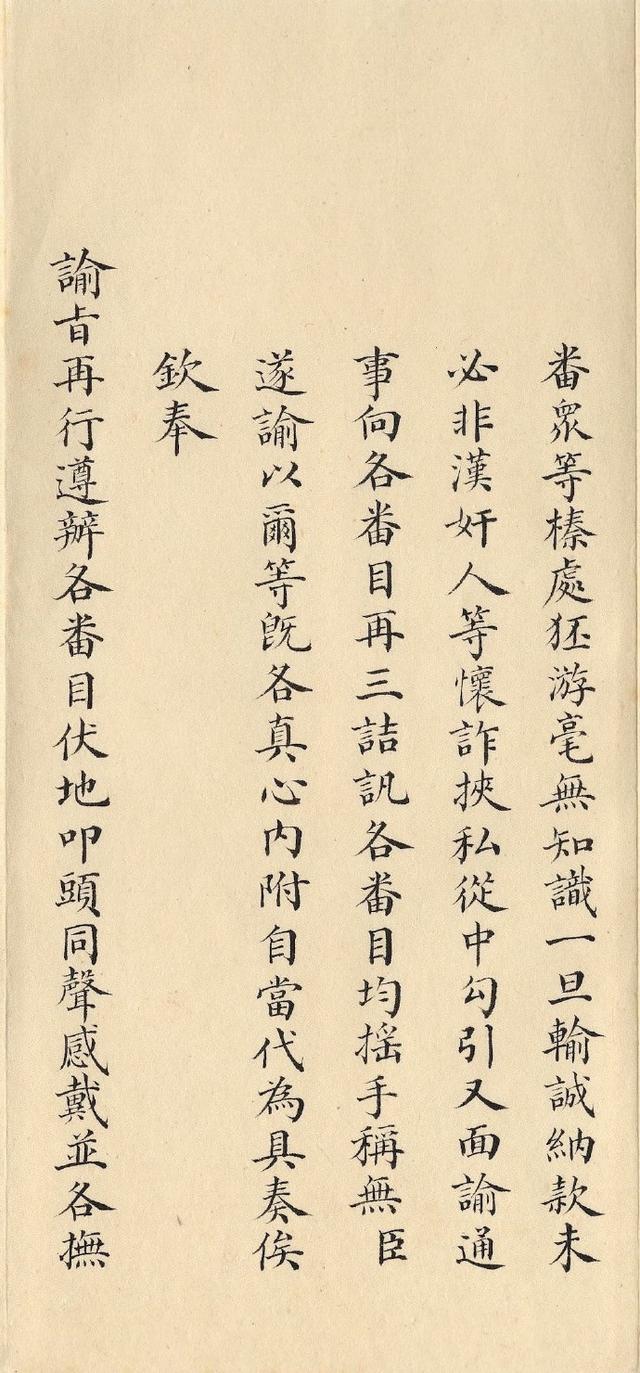 番眾等榛處狉游毫無知識一旦輸誠納款未
必非漢奸人等懷詐挾私從中勾引又面諭通
事向各番目再三詰訊各番目均搖手稱無臣
遂諭以爾等既各真心内附自當代為具奏俟
欽奉
諭旨再行遵辦各番目伏地叩頭同聲感戴並各撫